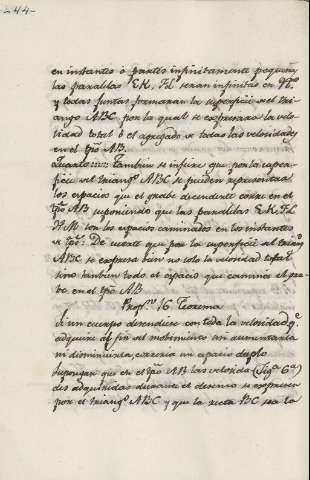 244
en instantes ó partes infinitamente pequeñas
las paralelas EK, FL seran infinitas en nº.
y todas juntas formaran la superficie del tri-
ango ABC, por la qual se expresara la velo-
cidad total ó el agregado de todas las velocidades
en el tpo AB.
Tambien se infiere que por la super-
ficie del triangº ABC se pueden representar
los espacios que el grabe descendente corre en el
tpo AB suponiendo que las paralelas EK, FL
son los espacios caminados en los instantes
de tpo: De suerte que por la superficie del triangº
ABC se expresa bien no solo la velocidad total
sino tambien todo el espacio que camina el gra-
be en el tpo AB.
Propⁿ 16 Teorema
Si un cuerpo desciende con toda la velocidad q.e
adquiere al fin del movimiento sin aumentarla
ni disminuirla, correria un espacio duplo
Supongase que en el tpo AB las velocida (Figª 6ª)
des adquiridas durante el descenso se expresen
por el triangº ABC y que la recta BC sea la